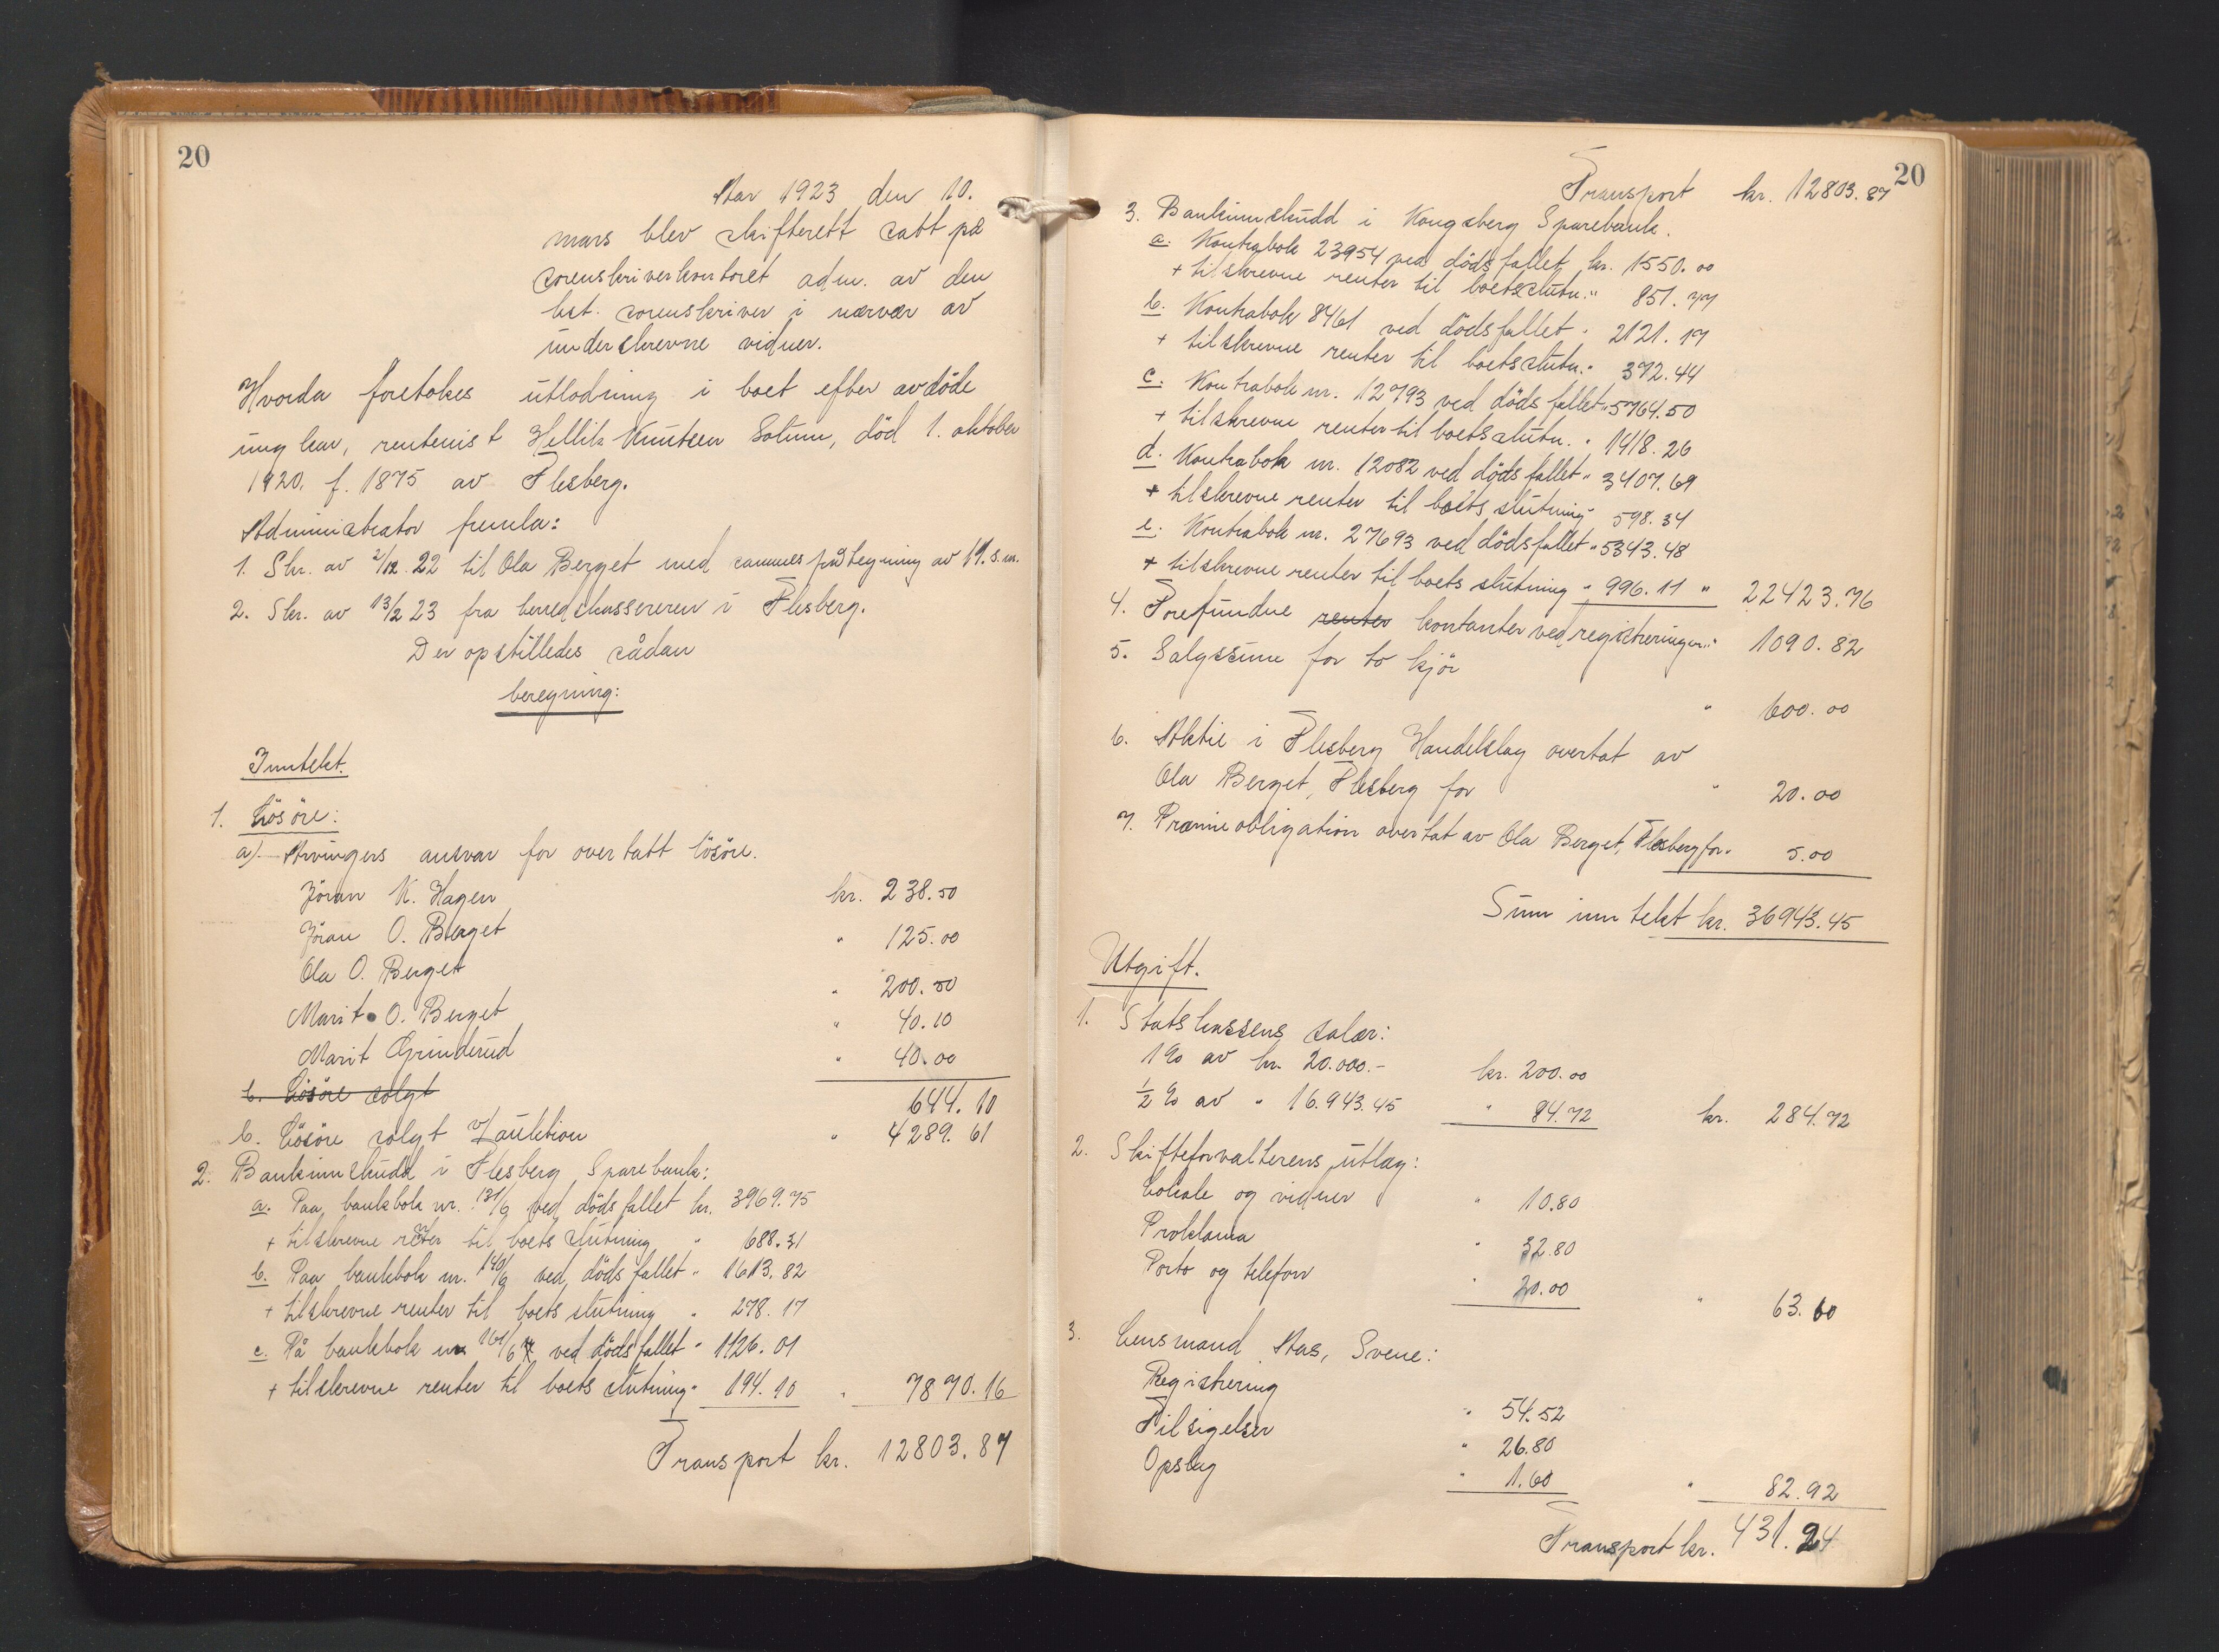 20
Aar 1923 den 10.
mars blev skifterett satt på
sorenskriverkontoret adm. av den
bst. sorenskriver i nærvær av
underskrevne vidner.
Hvorda foretokes utlodning i boet efter avdöde
ungkar, rentenist Hellik Knutsen Solum, död 1. oktober
1920. f. 1875 av Flesberg.
Administrator fremla:
1. Skr. av 2/12. 22 til Ola Berget med sammes påtegning av 19. s.m.
2. Skr. av 13/2 23 fra herredskassereren i Flesberg.
Der opstilledes sådan
beregning:
Inntekt.
1. Lösöre:
a) Arvingers ansvar for overtatt lösöre.
Jöran K. Hagen kr. 238.50
Jöran O. Berget " 125.00
Ola O. Berget " 200.50
Marit O. Berget " 40.10
Marit Grinderud " 40.00
b. Lösöre solgt
644.10
b. Lösöre solgt v/auktion " 4289.61
2. Bankinnskudd i Flesberg Sparebank:
a. Paa bankbok nr. 131/9 ved dödsfallet kr. 3969.75
+ tilskrevne renter til boets slutning " 688.31
b. Paa bankbok nr. 140/9 ved dödsfallet " 1613.82
+ tilskrevne renter til boets slutning " 278.17
c. På bankbok nr 161/6 ved dödsfallet " 1126.01
+ tilskrevne renter til boets slutning " 194.10 " 7870.16
Transport kr. 12803.87
20
Transport kr. 12803.87
3. Bankinnskudd i Kongsberg Sparebank.
a. Kontrabok 23954 ved dödsfallet kr. 1550.00
+ tilskrevne renter til boetsslutn. " 851.77
b. Kontrabok 8461 ved dödsfallet " 2121.17
+ tilskrevne renter til boetsslutn. " 372.44
c. Kontrabok nr. 12793 ved dödsfallet " 5764.50
+ tilskrevne renter til boetsslutn. " 1418.26
d. Kontrabok nr. 12082 ved dödsfallet " 3407.69
+ tilskrevne renter til boets slutning " 598.34
e. Kontrabok nr. 27693 ved dödsfallet " 5343.48
+ tilskrevne renter til boets slutning " 996.11 " 22423.76
4. Forefundne renter kontanter ved registreringen " 1090.82
5. Salgssum for to kjör " 600.00
6. Aktie i Flesberg Handelslag overtat av
Ola Berget, Flesberg for " 20.00
7. Præmieobligation overtat av Ola Berget, Flesberg for " 5.00
Sum inntekt kr. 36943.45
Utgift.
1. Statskassens salær:
1 % av kr. 20.000.- kr. 200.00
1/2 % av " 16.943.45 " 84.72 kr. 284.72
2. Skifteforvalterens utlæg:
Lokale og vidner " 10.80
Proklama " 32.80
Porto og telefon " 20.00 " 63.60
3. Lensmand Aas, Svene:
Registrering " 54.52
Tilsigelser " 26.80
Opslag " 1.60 " 82.92
Transport kr. 431.24